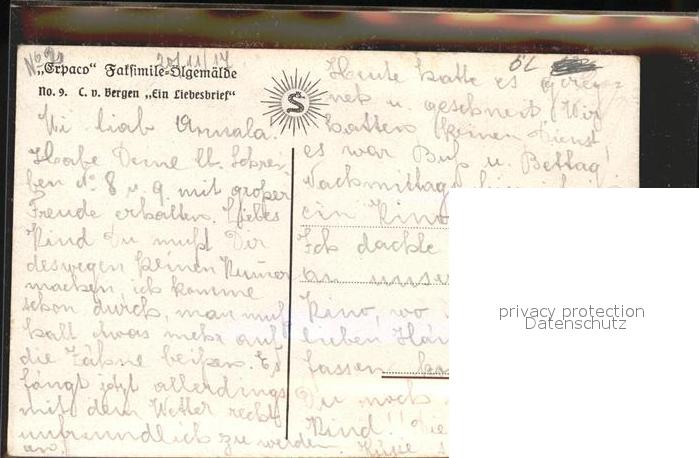 No 9
20/11/17
„Erpaco" Faksimile-Ölgemälde
No. 9. C. v. Bergen „Ein Liebesbrief"
S
Mi liab Annala.
Habe Deine lb. Schrei-
ben No 8 u. 9. mit großer
Freude erhalten. Liebes
Kind Du mußt Dir
deswegen keinen Kummer
machen, ich komme
schon durch, man muß
halt etwas mehr auf
die Zähne beißen. Es
fängt jetzt allerdings
mit dem Wetter recht
unfreundlich zu werden
an.
Heute hatte es gereg-
net u. geschneit. Wir
hatten keinen Dienst,
es war Buß u. Bettag!
Nachmittag
ein Kino
Ich dachte
an unser
Kino, wo
lieben Hän
fassen
Du noch
Kind!! Die
Küsse
privacy protection
Datenschutz